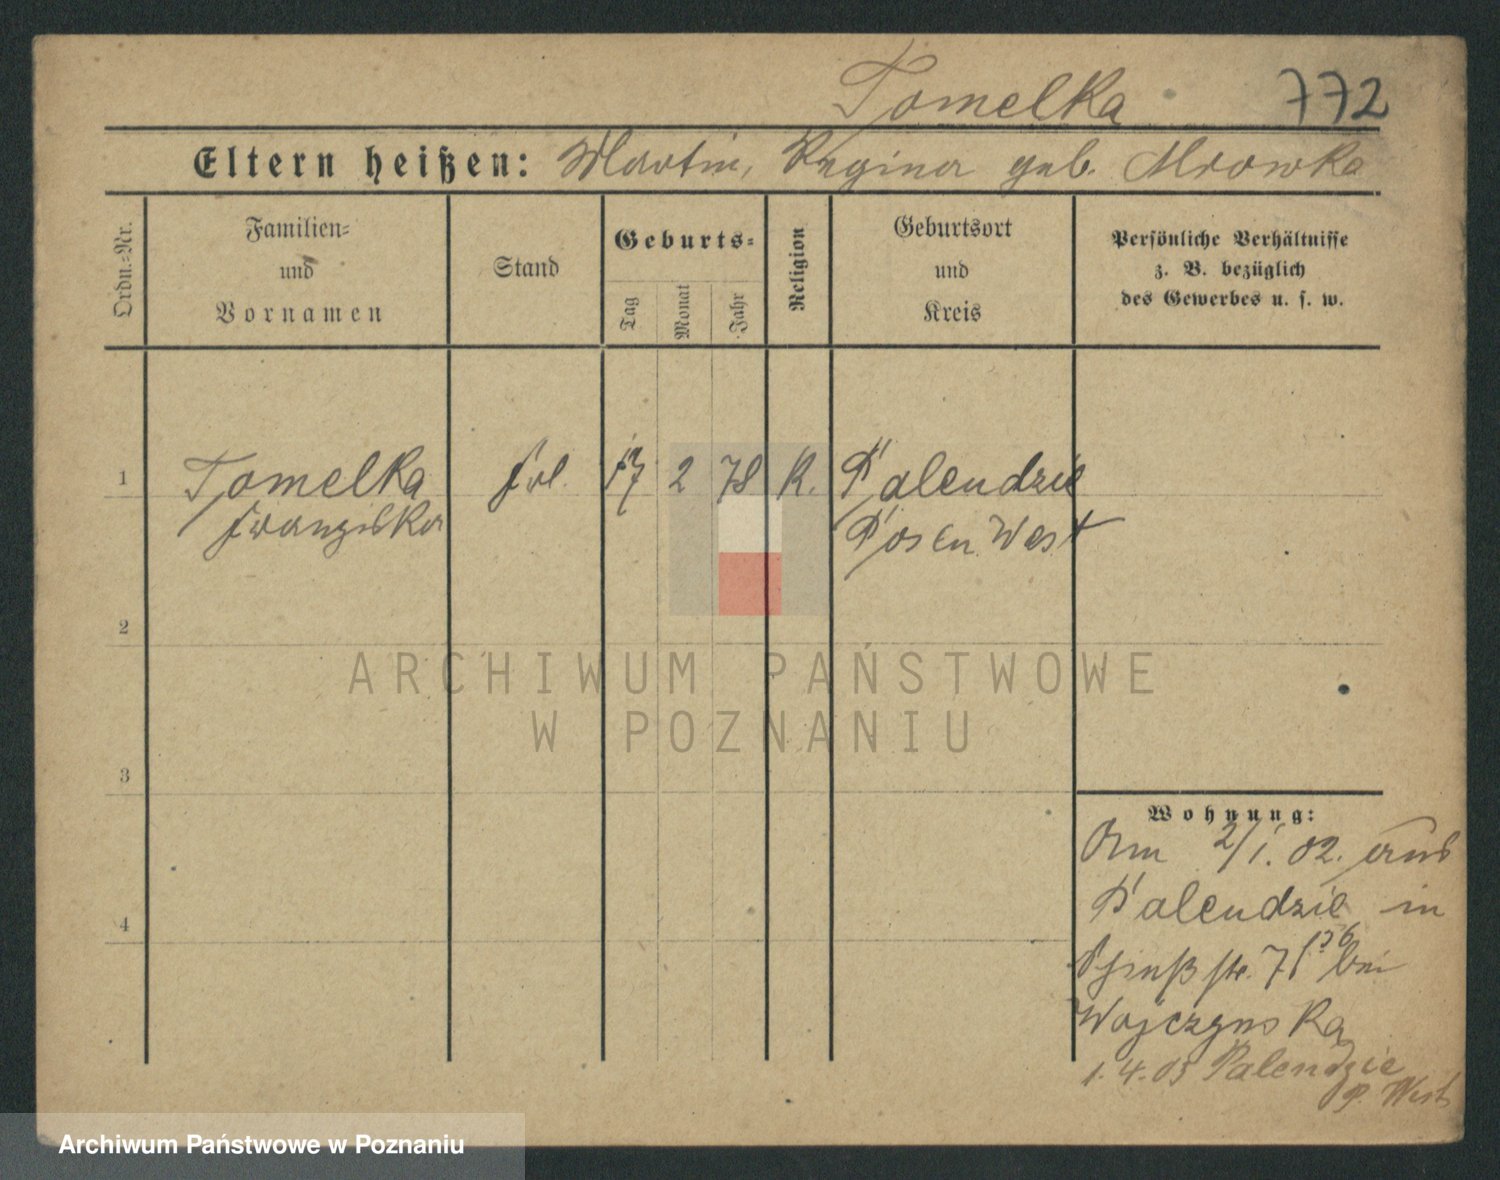 Tomelka 772
Eltern heißen: Martin, Regina geb. Mrowka
Ordn.-Nr.
Familien-
und
Vornamen
Stand
Geburts-
Tag
Monat
Jahr
Religion
Geburtsort
und
Kreis
Persönliche Verhältnisse
z. B. bezüglich
des Gewerbes u. s. w.
1 Tomelka frl. 17 2 78 K. Palendzie
Franziska Posen West
2
ARCHIWUM PAŃSTWOWE
W POZNANIU
3
4
Wohnung:
Am 2/1. 02. aus
Palendzie in
str. 7 bei
Wojczynska
1.4.03 Palendzie
P. West
Archiwum Państwowe w Poznaniu